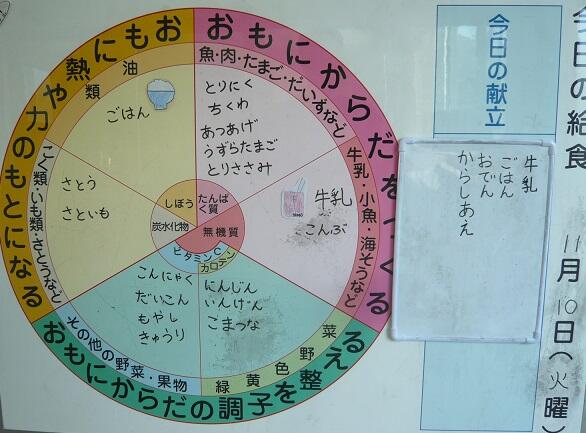 今日の給食
11月10日(火曜)
今日の献立
牛乳
ごはん
おでん
からしあえ
おもにからだをつくる
魚・肉・たまご・だいずなど
とりにく
ちくわ
あつあげ
うずらたまご
とりささみ
牛乳・小魚・海そうなど
牛乳
こんぶ
おもにからだの調子を整える
緑黄色野菜
にんじん
いんげん
こまつな
その他の野菜・果物
こんにゃく
だいこん
もやし
きゅうり
おもに熱や力のもとになる
こく類・いも類・さとうなど
さとう
さといも
油類
ごはん
しぼう
たんぱく質
炭水化物
無機質
ビタミンC
カロテン